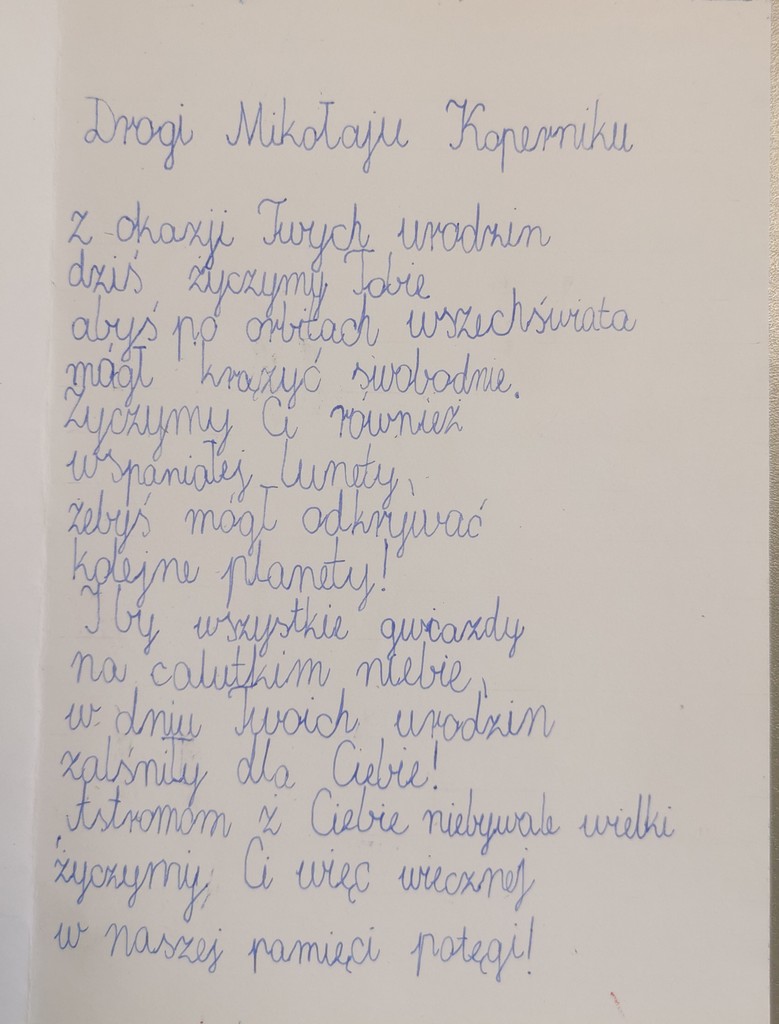 Drogi Mikołaju Koperniku
z okazji Twych urodzin
dziś życzymy Tobie
abyś po orbitach wszechświata
mógł krążyć swobodnie.
Życzymy Ci również
wspaniałej lunety,
żebyś mógł odkrywać
kolejne planety!
I by wszystkie gwiazdy
na calutkim niebie,
w dniu Twoich urodzin
zalśniły dla Ciebie!
Astronom z Ciebie niebywale wielki
życzymy Ci więc wiecznej
w naszej pamięci potęgi!